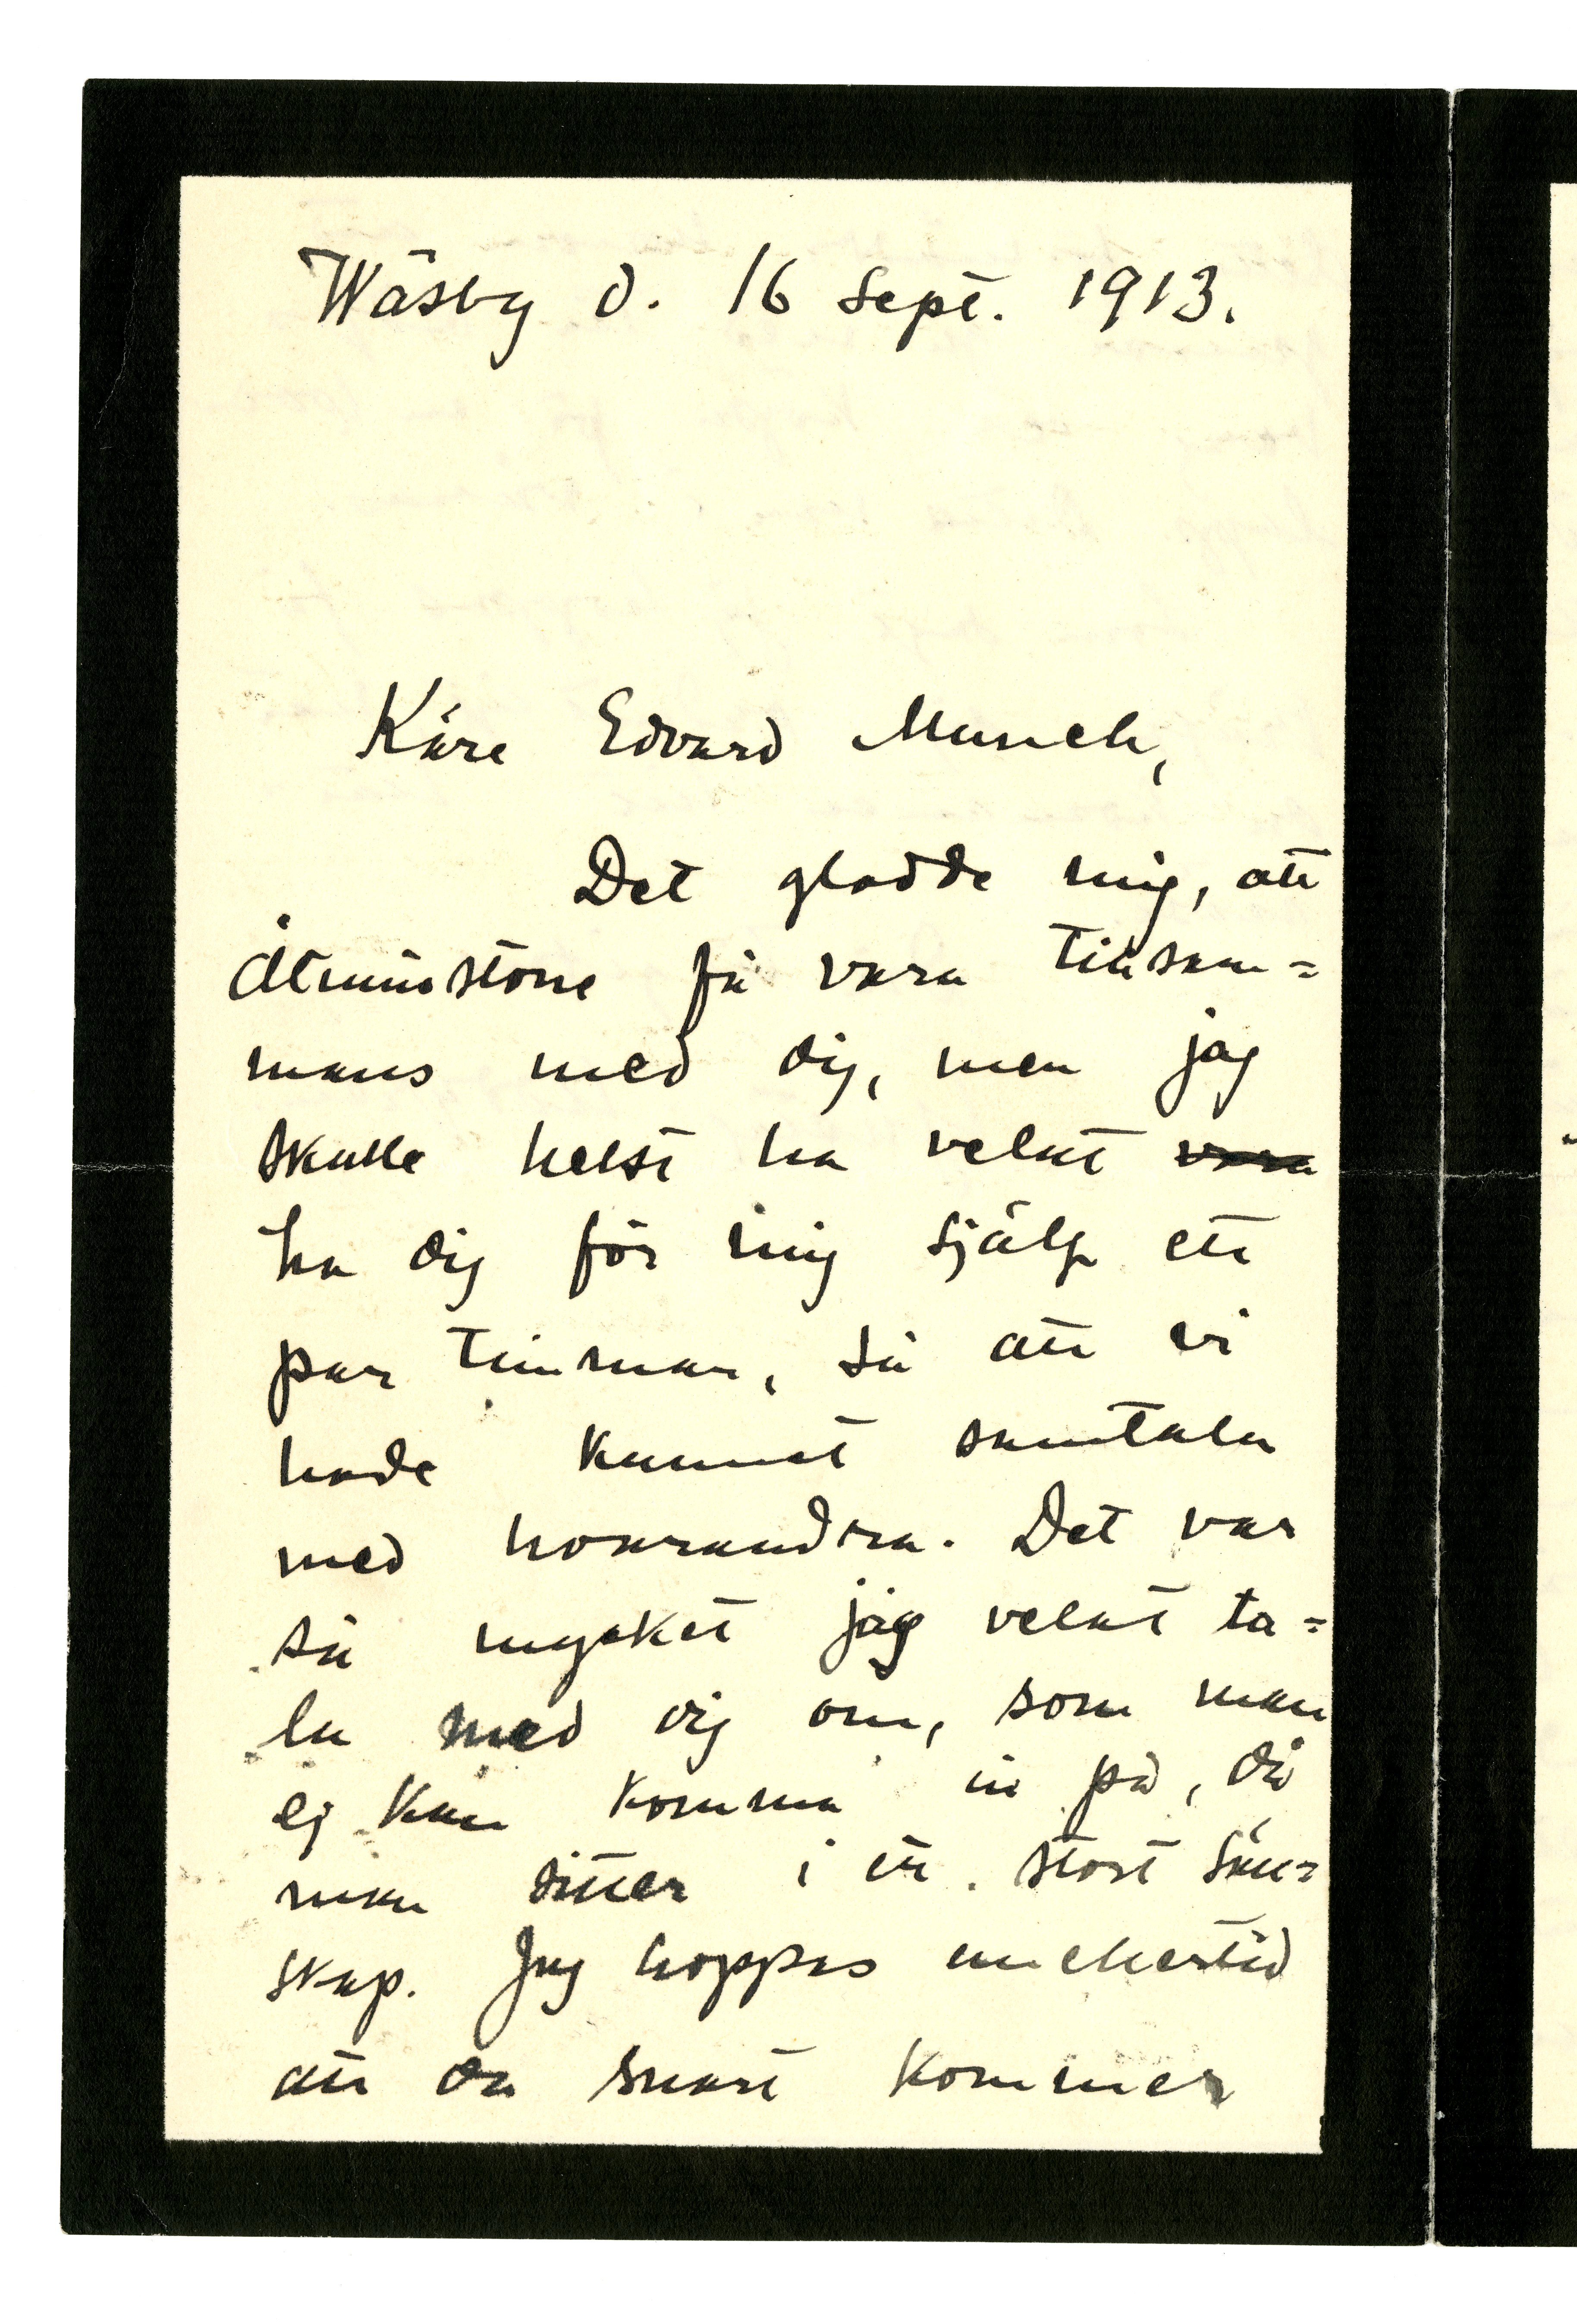 Wäsby d. 16 Sept. 1913.
Käre Edvard Munch,
Det gladde mig, att
Åtminstone få vara tillsam=
mans med dig, men jag
skulle helst ha velat vara
ha dig för mig själf ett
par timmar, så att vi
hade kunnat samtala
med hvarandra. Det var
så mycket jag velat ta=
la med dig om, som man
ej kan komma in på, då
man sitter i ett stort säll=
skap. Jag hoppas emellertid
att du snart kommer